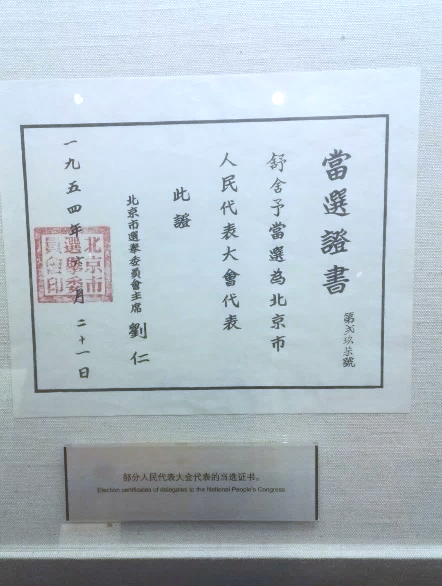 當選證書
第弍玖柒號
舒舍予當選為北京市
人民代表大會代表
此證
北京市選舉委員會主席 劉仁
一九五四年 月二十一日
北京市
選舉委
員會印
部分人民代表大会代表的当选证书。
Election certificates of delegates to the National People's Congress